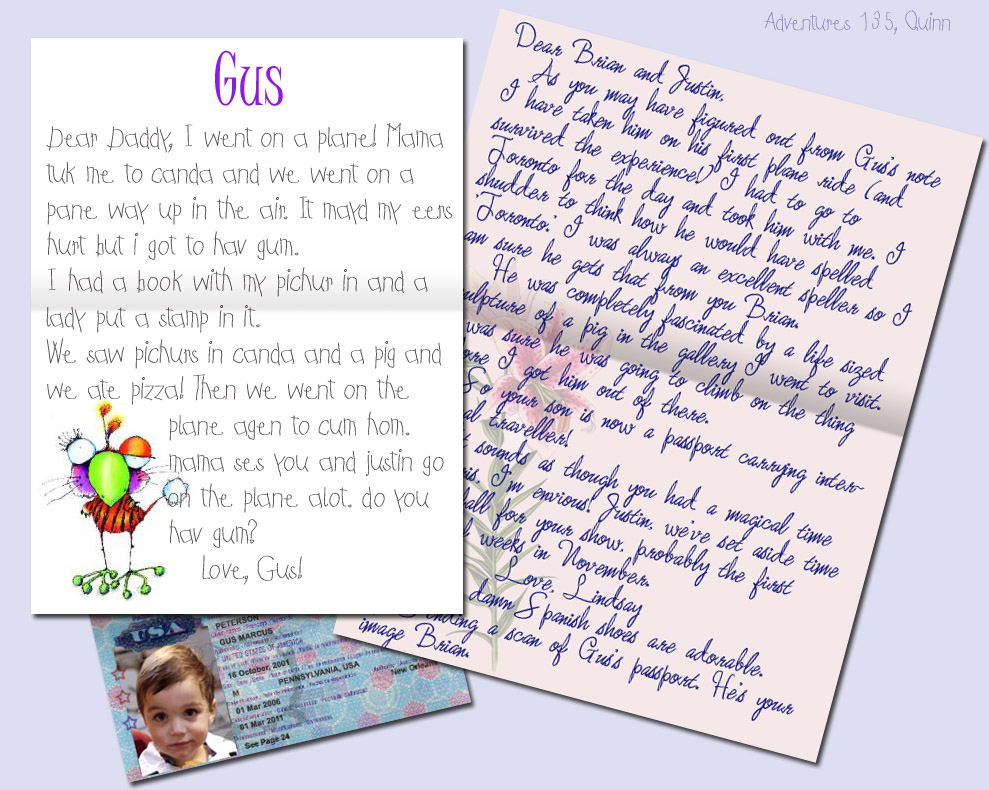 Adventures 135, Quinn
Gus
Dear Daddy, I went on a plane! Mama
tuk me to canda and we went on a
pane way up in the air. It mayd my eers
hurt but i got to hav gum.
I had a book with my pichur in and a
lady put a stamp in it.
We saw pichurs in canda and a pig and
we ate pizza! Then we went on the
plane agen to cum hom.
mama ses you and justin go
on the plane alot. do you
hav gum?
Love, Gus!
Dear Brian and Justin,
As you may have figured out from Gus's note
I have taken him on his first plane ride (and
survived the experience!) I had to go to
Toronto for the day and took him with me. I
shudder to think how he would have spelled
'Toronto'. I was always an excellent speller so I
am sure he gets that from you Brian.
He was completely fascinated by a life sized
sculpture of a pig in the gallery I went to visit.
was sure he was going to climb on the thing
I got him out of there.
So your son is now a passport carrying inter-
al traveller!
sounds as though you had a magical time
I'm envious! Justin, we've set aside time
all for your show, probably the first
weeks in November.
Love, Lindsay
damn Spanish shoes are adorable.
a scan of Gus's passport. He's your
image Brian.
USA
PETERSON
GUS MARCUS
UNITED STATES OF AMERICA
16 October, 2001
M PENNSYLVANIA, USA
01 Mar 2006
New Orleans
01 Mar 2011
See Page 24